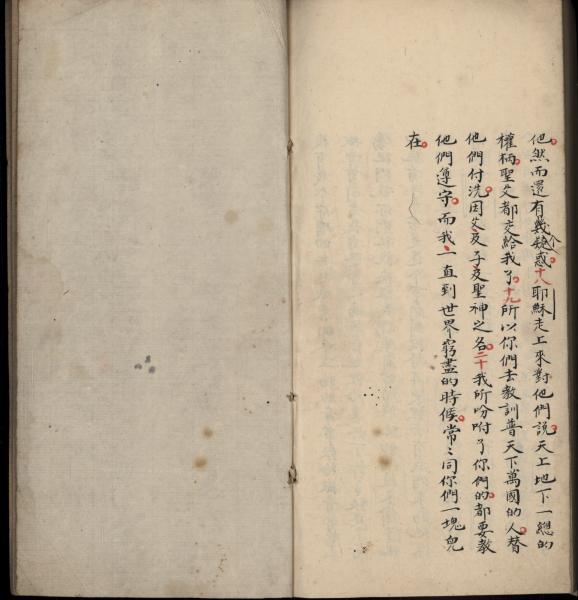 他。然而還有幾個疑惑。十八耶穌走上來對他們說。天上地下一總的
權柄。聖父都交給我了。十九所以你們去教訓普天下萬國的人。替
他們付洗。因父及子及聖神之名。二十我所吩咐了你們的。都要教
他們遵守。而我一直到世界窮盡的時候。常〻同你們一塊兒
在。